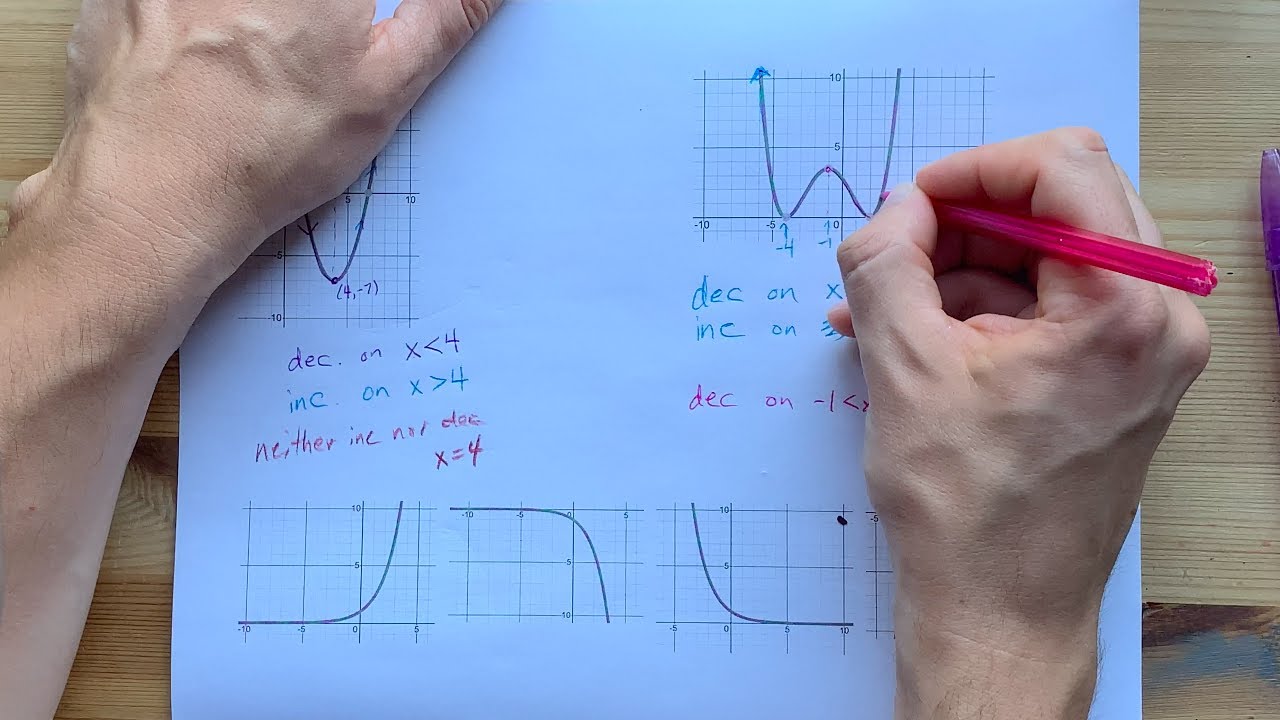 5
10
-5
(4,-7)
-10
dec. on x<4
inc. on x>4
neither inc nor dec
x=4
10
5
-10
-5
-4
-1
dec on x
inc on
dec on -1<
10
5
-10
-5
0
5
-10
-5
0
5
-5
-10
10
5
-5
0
5
10
-5